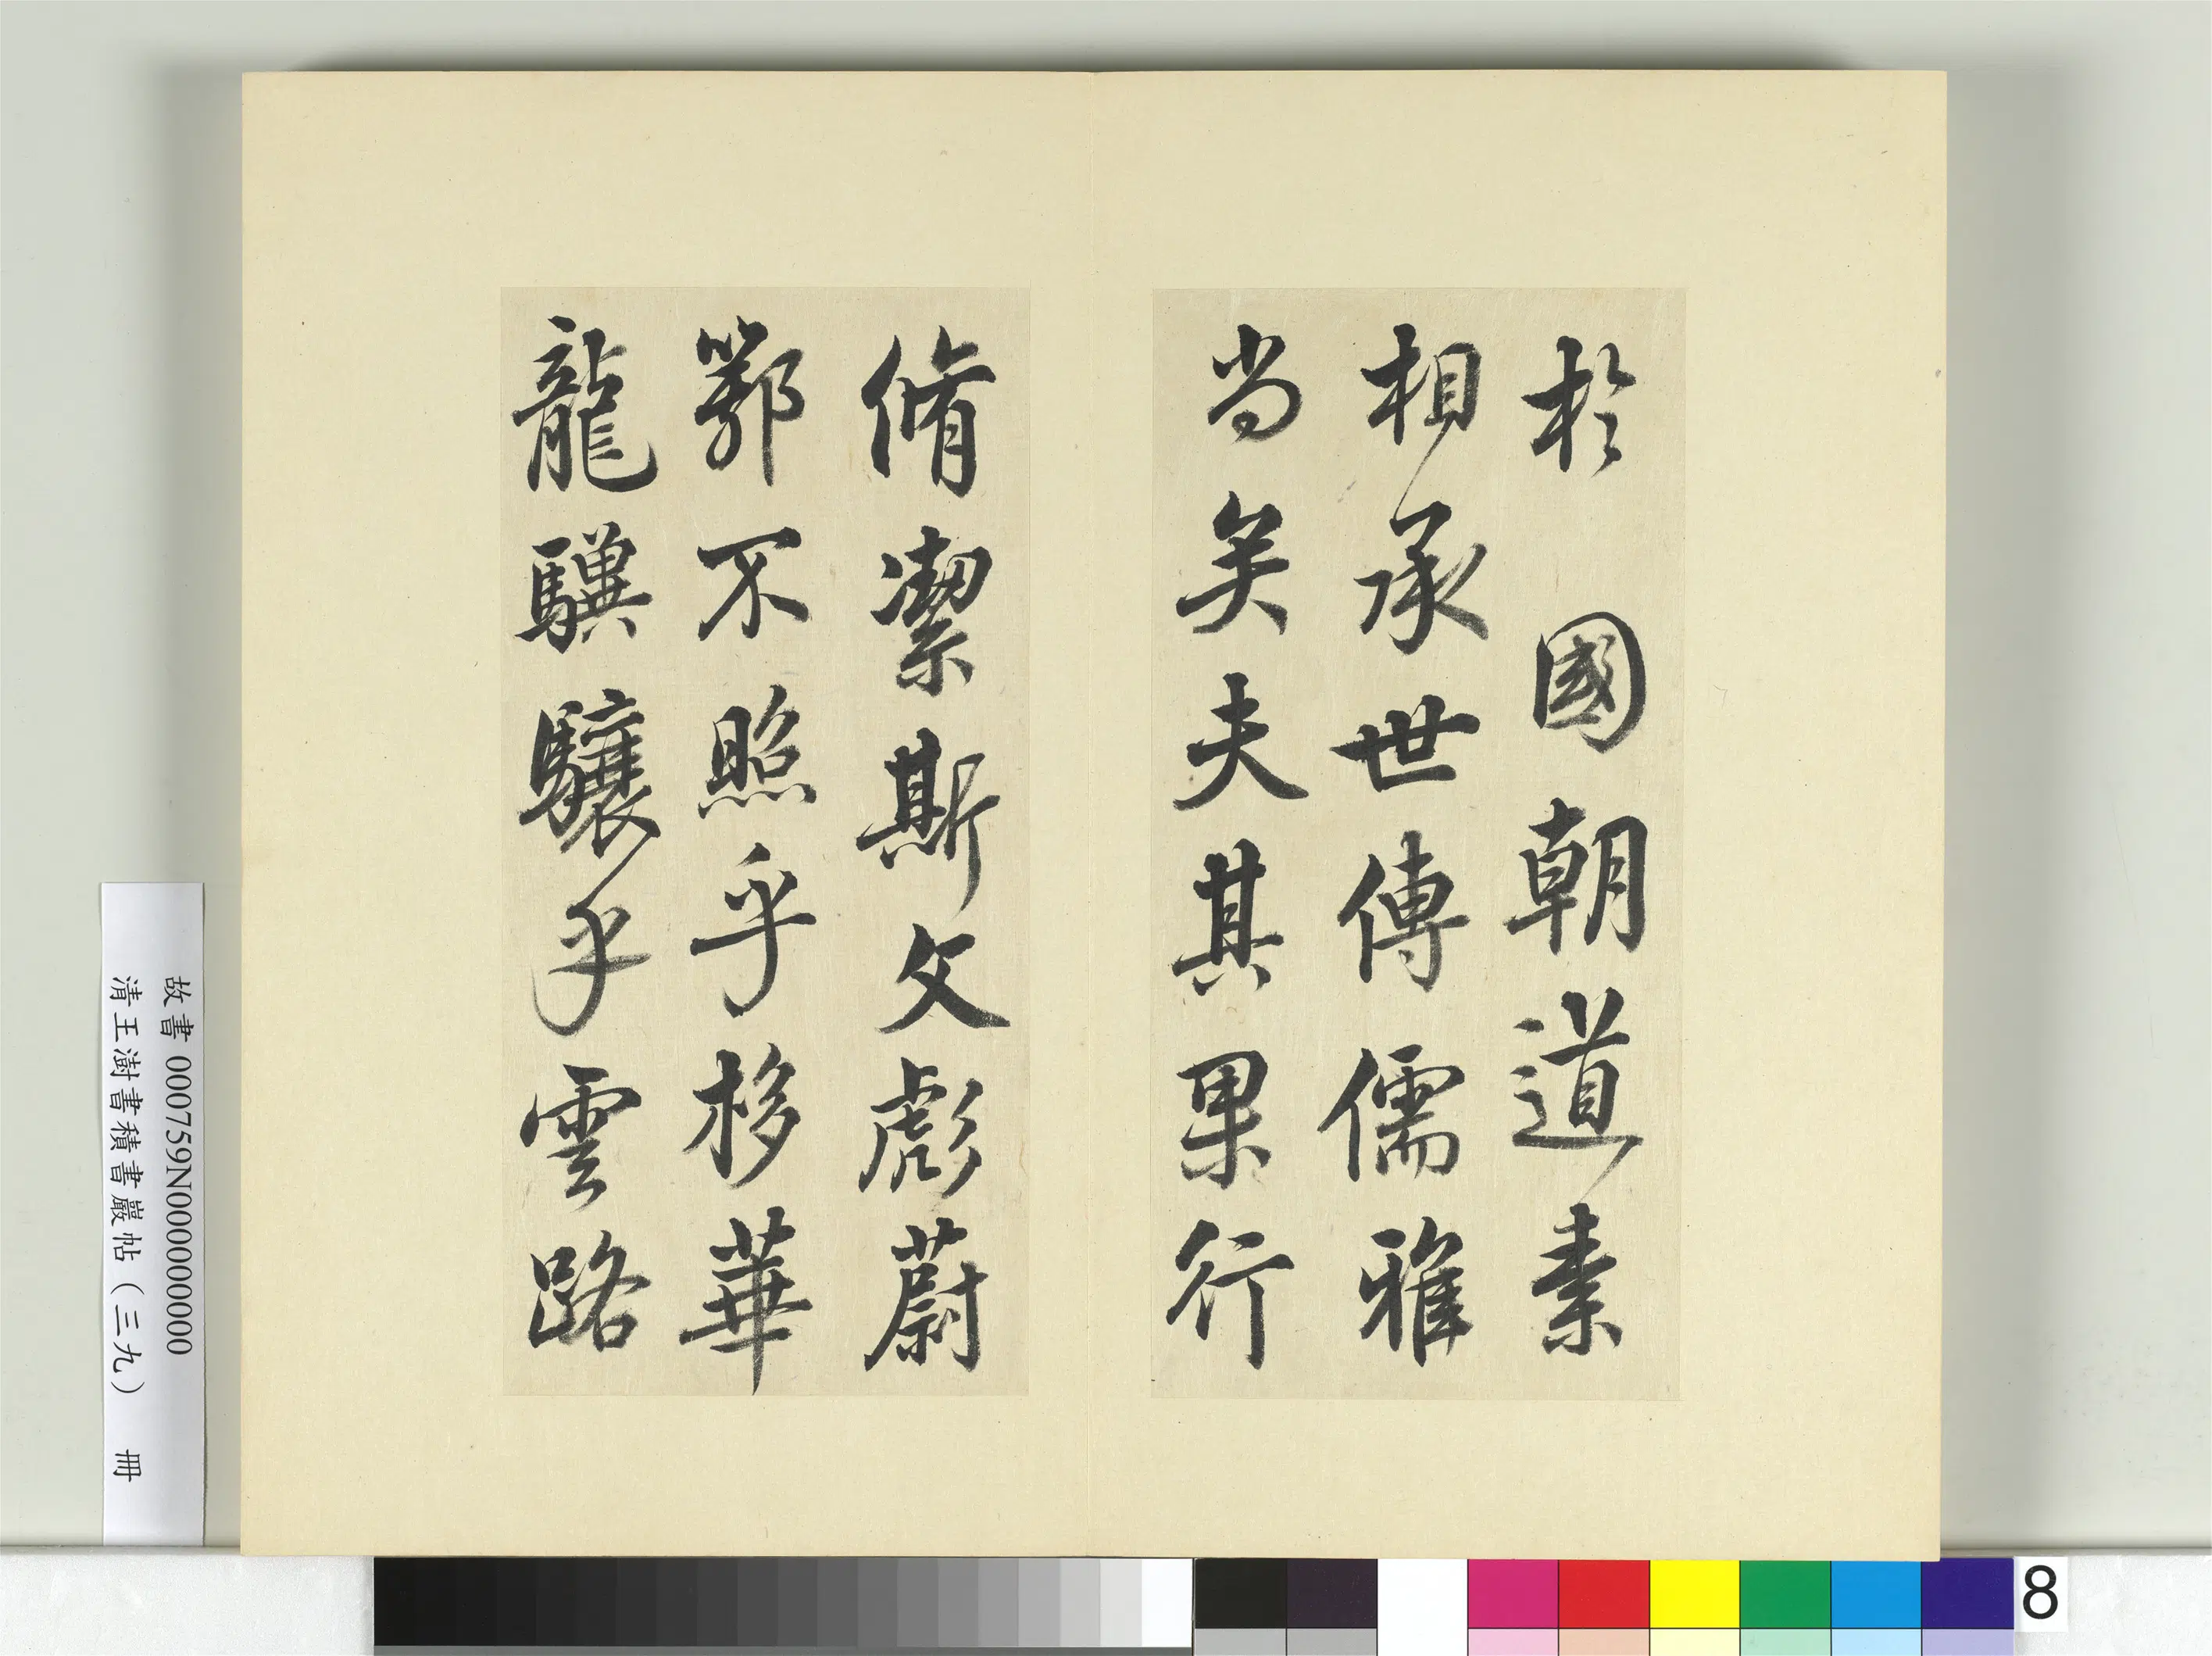 於 國朝道素
相承世傳儒雅
尚矣夫其果行
脩潔斯文彪蔚
鄂不照乎移華
龍驥驤乎雲路
故書 000759N000000000
清王澍書積書巖帖（三九） 冊
8